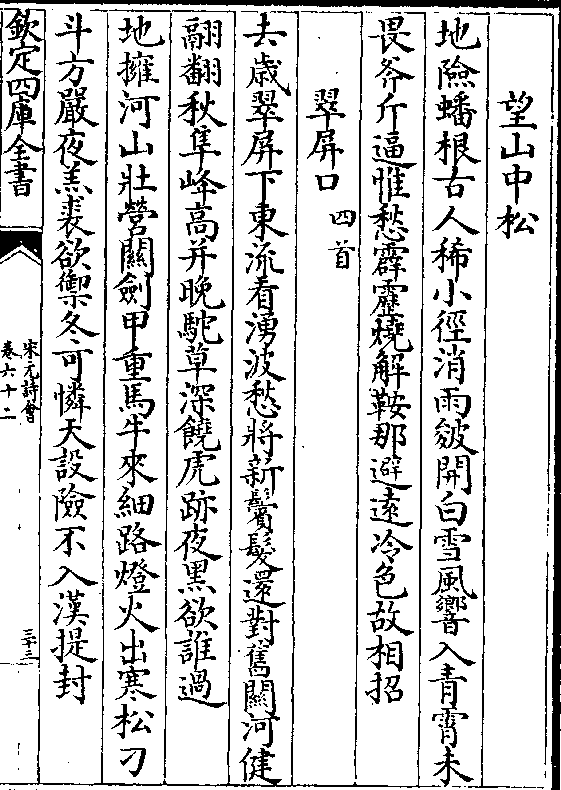 望山中松
地險蟠根古人稀小徑消雨皴開白雪風響入青霄未
畏斧斤逼惟愁霹靂燒解鞍那避遠冷色故相招
翠屏口四首
去歳翠屏下東流看湧波愁將新鬢髮還對舊關河健
翮翻秋隼峰高并晚駝草深饒虎跡夜黑欲誰過
地擁河山壯營關劍甲重馬牛來細路燈火出寒松刁
斗方嚴夜羔裘欲禦冬可憐天設險不入漢提封
欽定四庫全書
宋元詩會
卷六十二
三十三